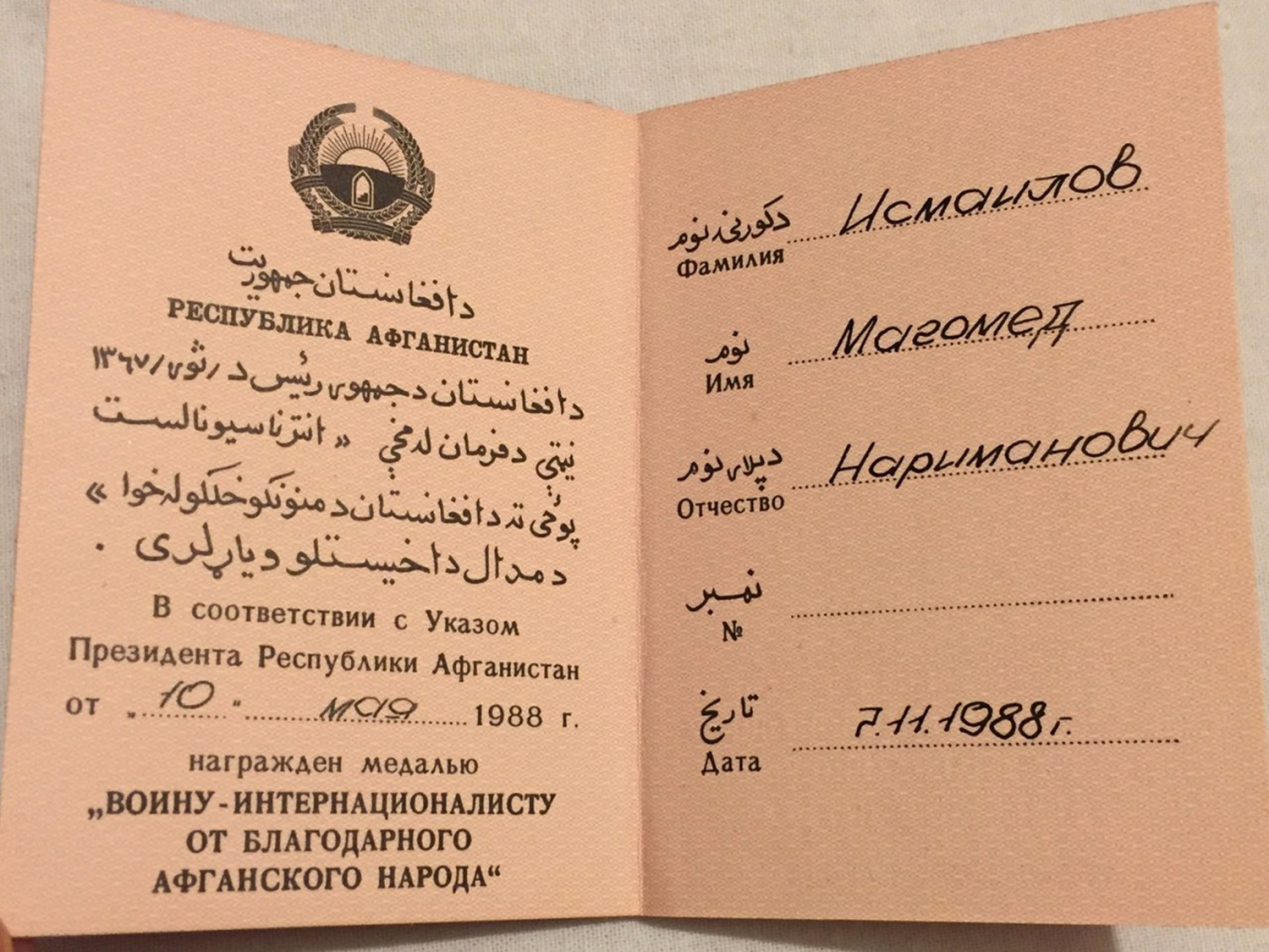 دافغانستان جمهوریت
РЕСПУБЛИКА АФГАНИСТАН
دافغانستان دجمهوری رئیس د /ثوری/ ۱۳۶۷
نیټې دفرمان له مخې « انترناسیونالست
پوځی ته دافغانستان د منونکو خلکو له خوا »
د مدال داخیستلو ویاړ لری .
В соответствии с Указом
Президента Республики Афганистан
от „ 10 “ мая 1988 г.
награжден медалью
„ВОИНУ-ИНТЕРНАЦИОНАЛИСТУ
ОТ БЛАГОДАРНОГО
АФГАНСКОГО НАРОДА“
دکورنۍ نوم Исмаилов
Фамилия
نوم Магомед
Имя
دپلار نوم Нариманович
Отчество
نمبر
№
تاریخ 7.11.1988г.
Дата